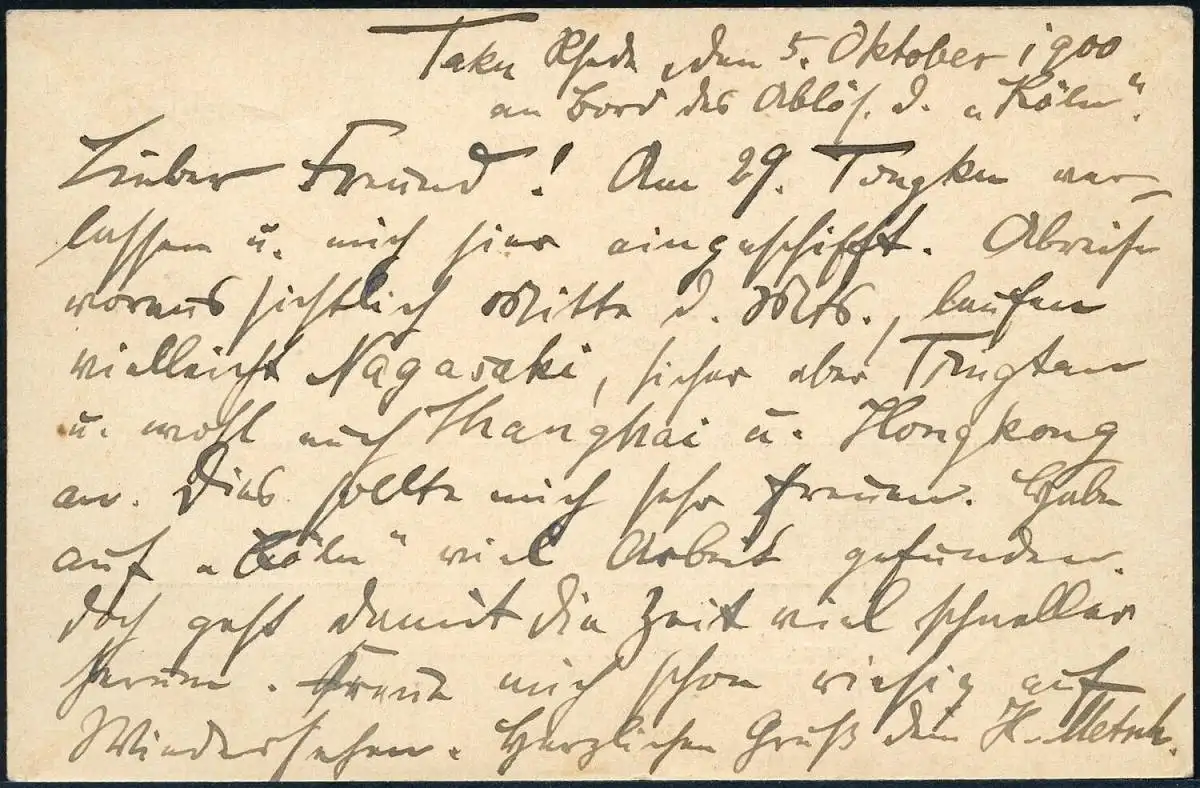 Taku Rhede, den 5. Oktober 1900
an Bord des Ablös. d. „Köln".
Lieber Freund! Am 29. Tongku ver-
lassen u. mich hier eingeschifft. Abreise
voraussichtlich Mitte d. Mts., laufen
vielleicht Nagasaki, sicher aber Tsingtau
u. wohl auch Shanghai u. Hongkong
an. Dies sollte mich sehr freuen. Habe
auf „Köln" viel Arbeit gefunden.
doch geht damit die Zeit viel schneller
herum. Freue mich schon riesig auf
Wiedersehen. Herzlichen Gruß dein H.